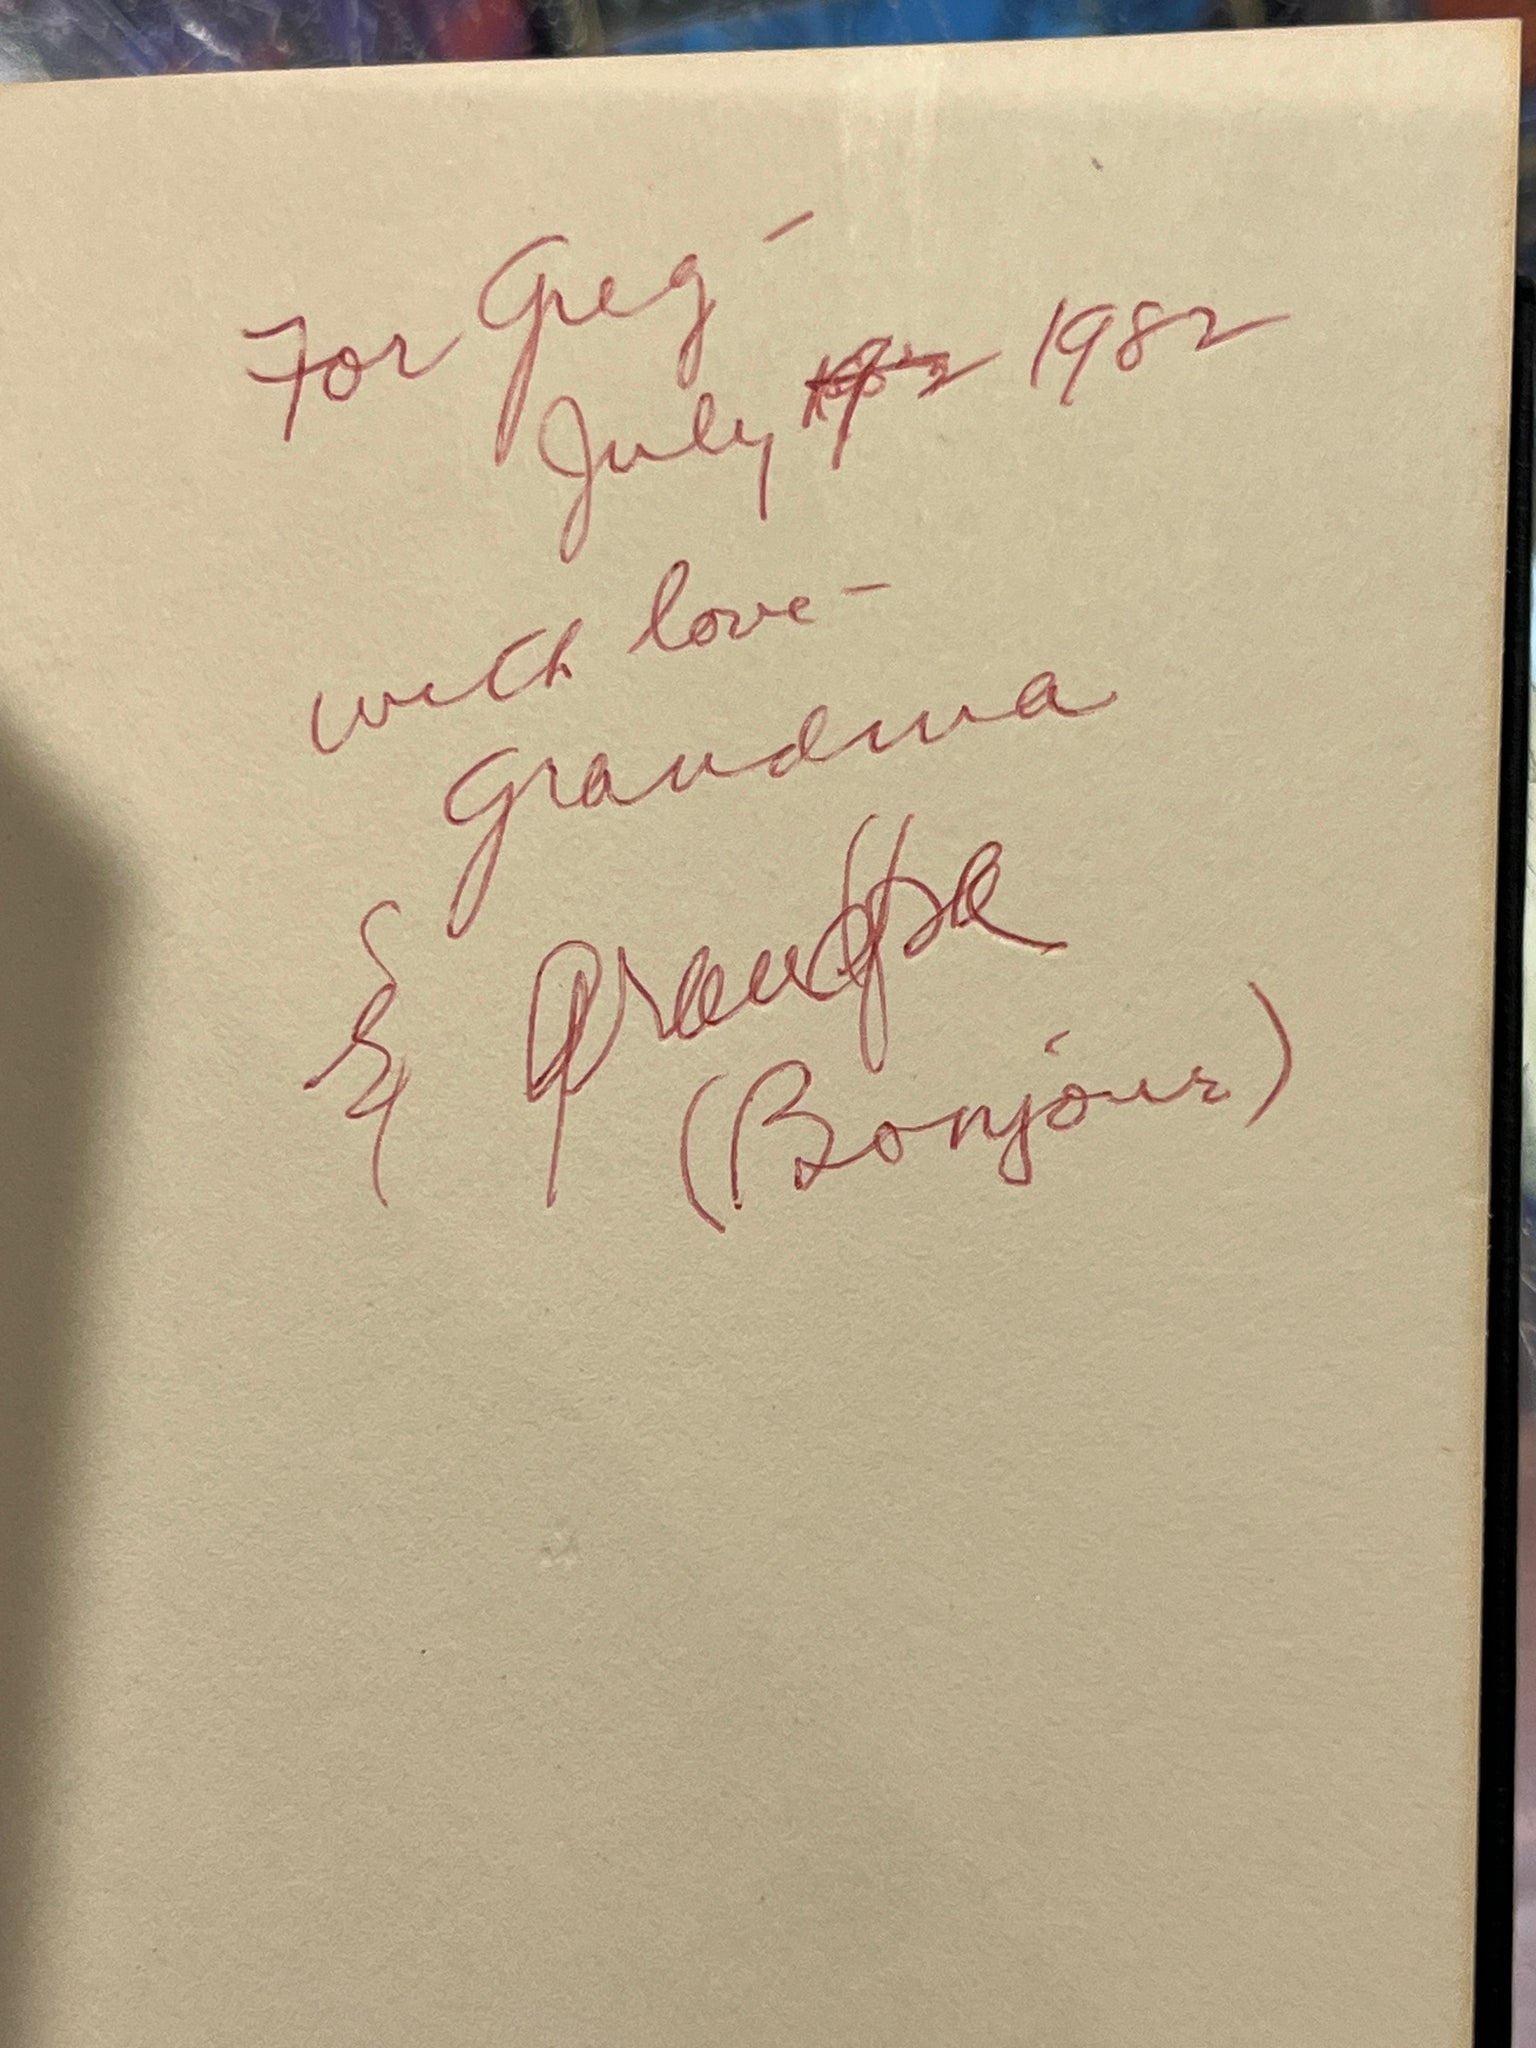 For Greg -
July 1982
with love -
Grandma
& Grandpa
(Bonjour)